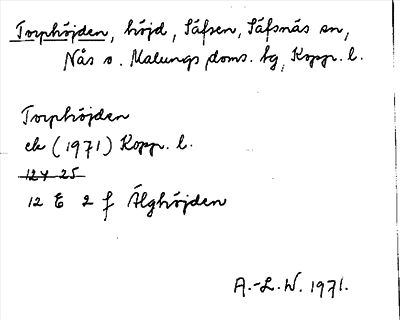 Torphöjden, höjd, Säfsen, Säfsnäs sn,
Nås o. Malungs doms. hg, Kopp. l.
Torphöjden
ek (1971) Kopp. l.
12 E 2 f Älghöjden
A.-L. W. 1971.